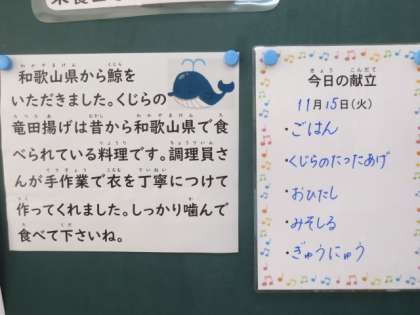 和歌山県から鯨を
いただきました。くじらの
竜田揚げは昔から和歌山県で食
べられている料理です。調理員さ
んが手作業で衣を丁寧につけて
作ってくれました。しっかり噛んで
食べて下さいね。
今日の献立
11月15日(火)
・ごはん
・くじらのたつたあげ
・おひたし
・みそしる
・ぎゅうにゅう